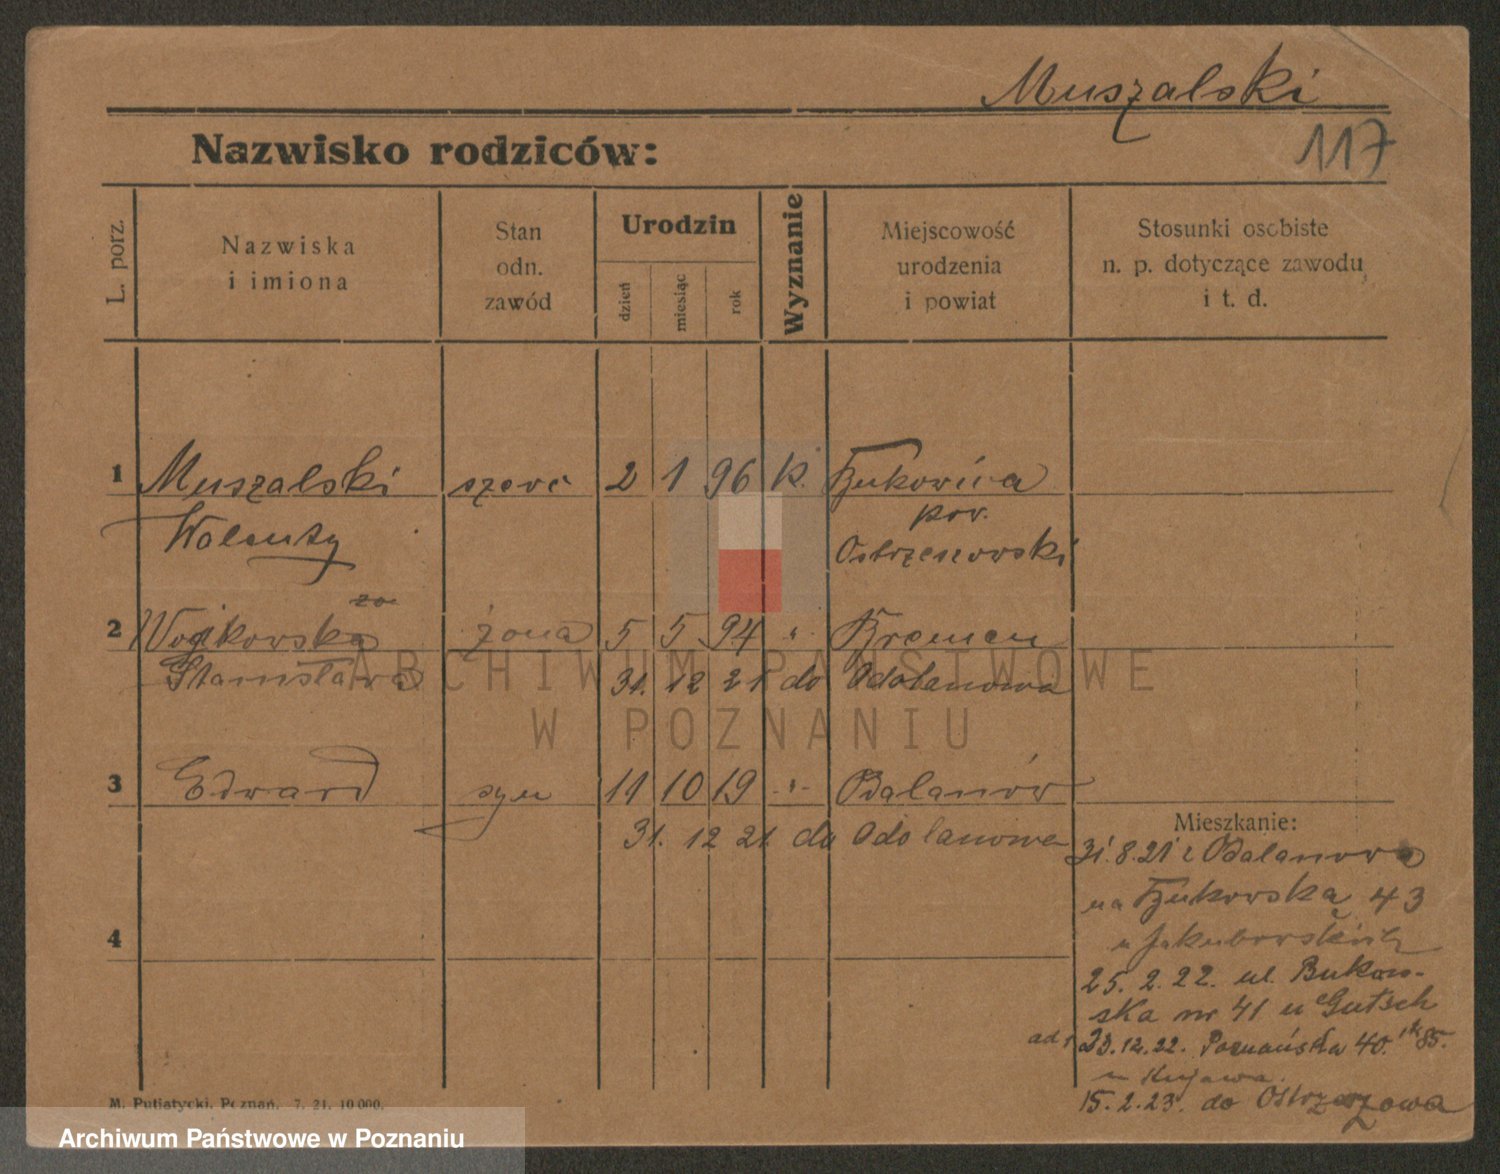 Muszalski
117
Nazwisko rodziców:
L. porz.
Nazwiska
i imiona
Stan
odn.
zawód
Urodzin
dzień
miesiąc
rok
Wyznanie
Miejscowość
urodzenia
i powiat
Stosunki osobiste
n. p. dotyczące zawodu
i t. d.
1 Muszalski szewc 2 1 96 k.
Walenty pow.
zo
2 Wojkowska żona 5 5 94 " Bremen
Stanisława 31. 12 21 do Odolanowa
3 Edward syn 11 10 19 " Odalanów
31. 12 21. do Odolanowa
4
Mieszkanie:
31.8.21 z Odalanowa
na 43
u
25. 2. 22. ul. Bukow-
ska nr 41 u Gutsch
ad 1 23.12.22. Poznańska 40. 85.
u Kujawa.
15. 2. 23. do Ostrzeszowa
M. Putiatycki, Poznań. 7. 21. 10 000.
ARCHIWUM PAŃSTWOWE
W POZNANIU
Archiwum Państwowe w Poznaniu